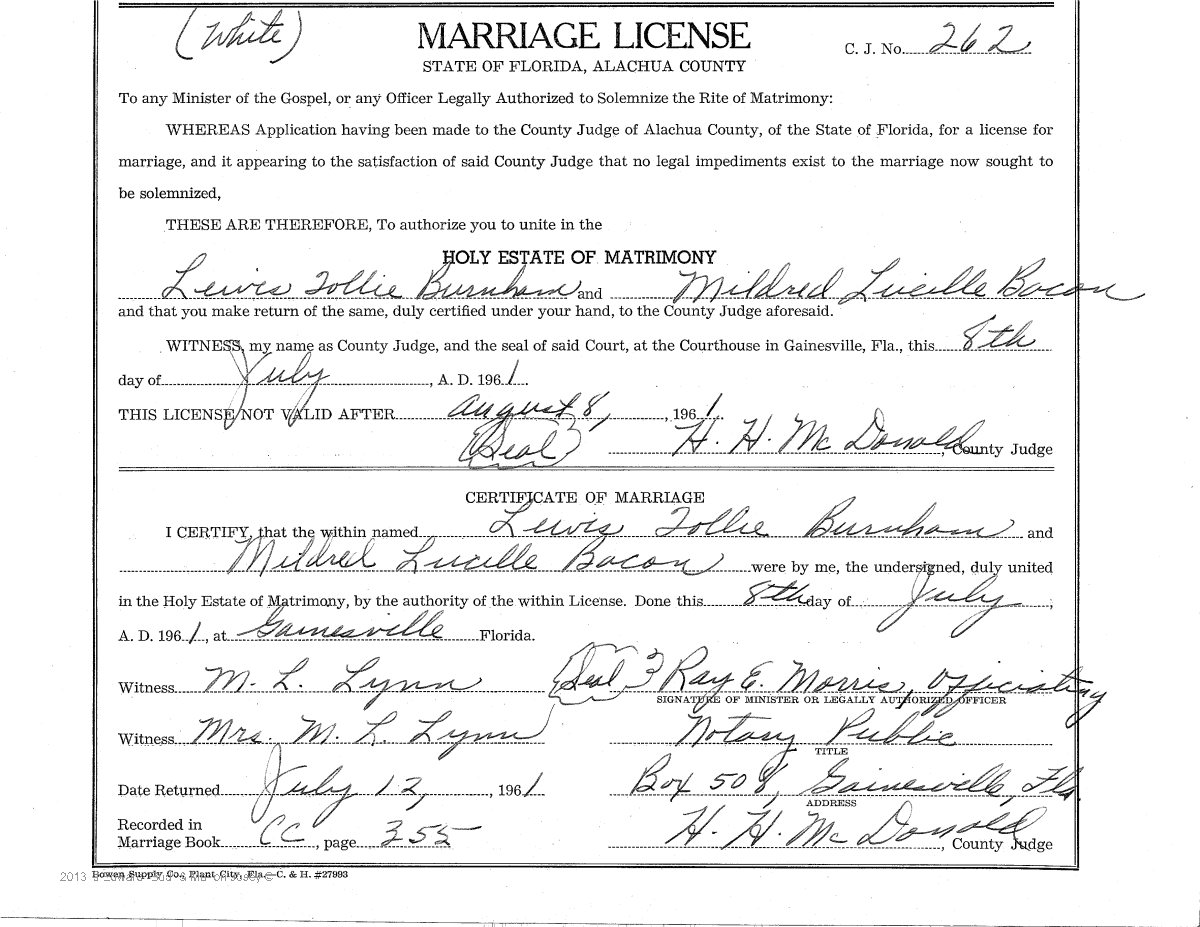 (White)
MARRIAGE LICENSE
C. J. No. 262
STATE OF FLORIDA, ALACHUA COUNTY
To any Minister of the Gospel, or any Officer Legally Authorized to Solemnize the Rite of Matrimony:
WHEREAS Application having been made to the County Judge of Alachua County, of the State of Florida, for a license for
marriage, and it appearing to the satisfaction of said County Judge that no legal impediments exist to the marriage now sought to
be solemnized,
THESE ARE THEREFORE, To authorize you to unite in the
HOLY ESTATE OF MATRIMONY
Lewis Tollie Burnham and Mildred Lucille Bacon
and that you make return of the same, duly certified under your hand, to the County Judge aforesaid.
WITNESS, my name as County Judge, and the seal of said Court, at the Courthouse in Gainesville, Fla., this 8th
day of July, A. D. 1961.
THIS LICENSE NOT VALID AFTER August 8, , 1961.
(Seal) H. H. McDonald, County Judge
CERTIFICATE OF MARRIAGE
I CERTIFY, that the within named Lewis Tollie Burnham and
Mildred Lucille Bacon were by me, the undersigned, duly united
in the Holy Estate of Matrimony, by the authority of the within License. Done this 8th day of July,
A. D. 1961, at Gainesville Florida.
Witness M. L. Lynn {Seal} Ray E. Morris, Officiating
SIGNATURE OF MINISTER OR LEGALLY AUTHORIZED OFFICER
Witness Mrs. M. L. Lynn Notary Public
TITLE
Date Returned July 12, , 1961 Box 508, Gainesville, Fla.
ADDRESS
Recorded in
Marriage Book CC, page 355 H. H. McDonald, County Judge
Bowen Supply Co., Plant City, Fla.—C. & H. #27993
2013